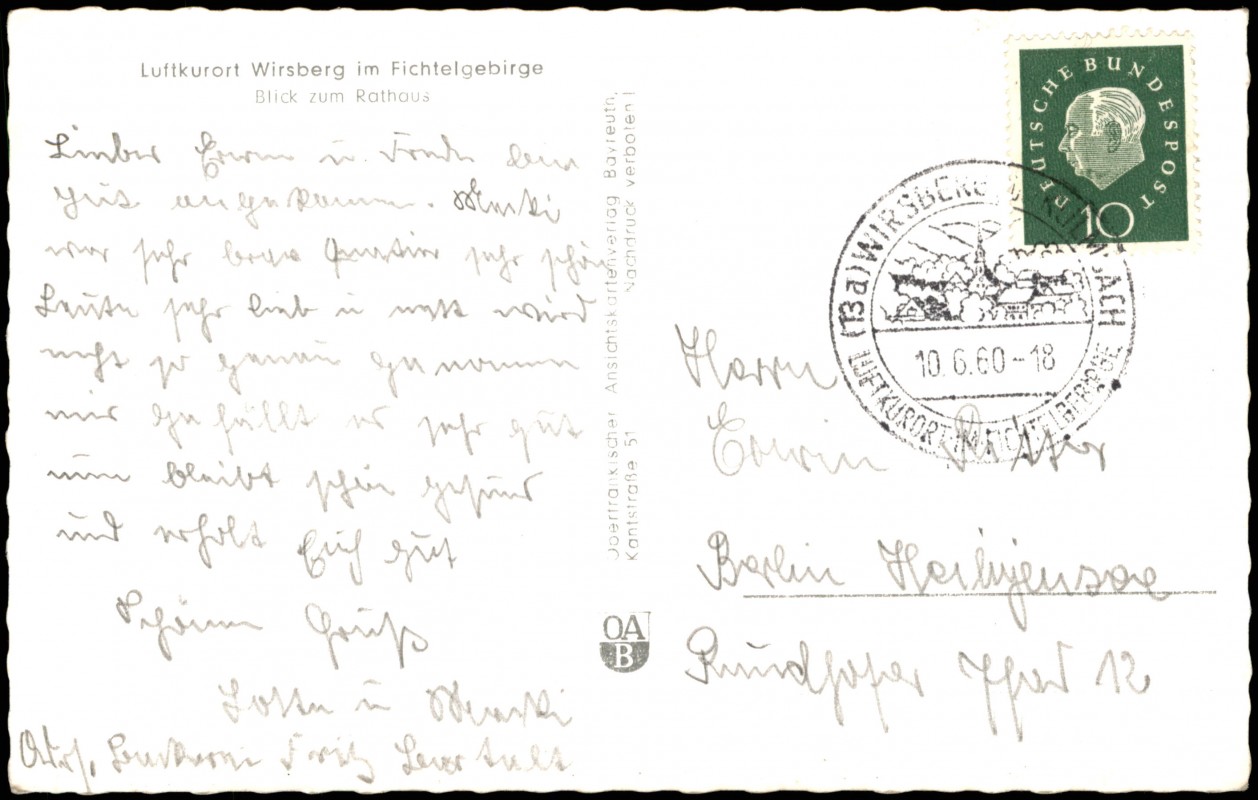 Luftkurort Wirsberg im Fichtelgebirge
Blick zum Rathaus
Lieber Erwin u. Frieda
gut angekommen.
war sehr brav Quartier sehr schön
Leute sehr lieb u nett wird
nicht so genau genommen
mir gefällt es sehr gut
nun bleibt schön gesund
und erholt Euch gut
Schönen Gruß
Lotte u
Bäckerei Fritz
Oberfränkischer Ansichtskartenverlag Bayreuth,
Kantstraße 51 Nachdruck verboten!
OA
B
DEUTSCHE BUNDESPOST
10
(13a) WIRSBERG KULMBACH
10.6.60-18
LUFTKURORT IM FICHTELGEBIRGE
Herrn
Erwin Ritter
Berlin Heiligensee
12